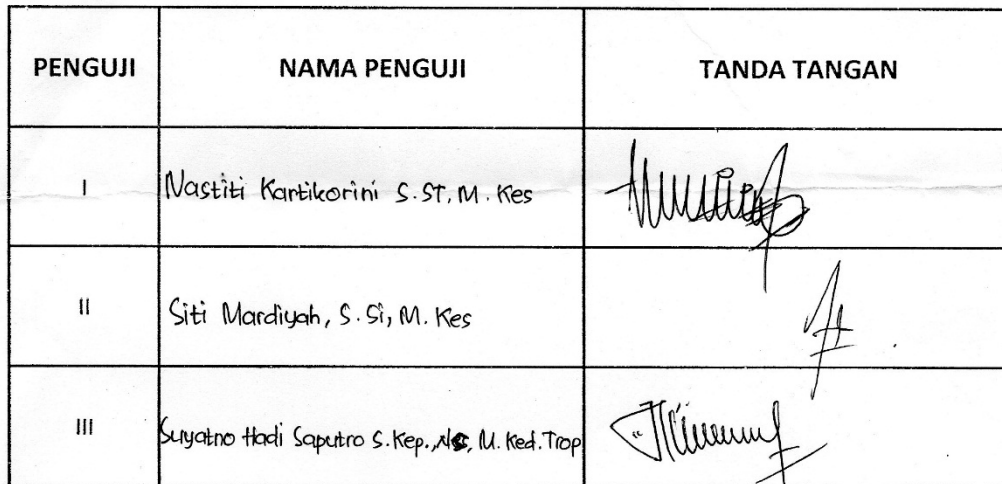 PENGUJI NAMA PENGUJI TANDA TANGAN
I Nastiti Kartikorini S.ST, M. Kes
II Siti Mardiyah, S.Si, M. Kes
III Suyatno Hadi Saputro S.Kep., Ns, M. Ked. Trop